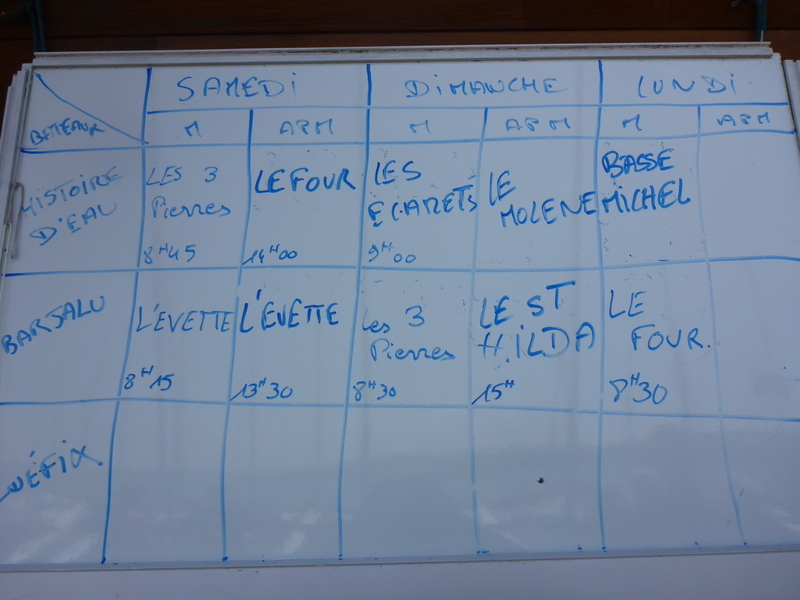 SAMEDI DIMANCHE LUNDI
BATEAUX M APM M APM M APM
HISTOIRE
D'EAU
LES 3
Pierres
8H45
LE FOUR
14H00
LES
ECARETS
9H00
LE
MOLENE
BASSE
MICHEL
BARSALU
L'EVETTE
8H15
L'EVETTE
13H30
Les 3
Pierres
8H30
LE ST
HILDA
15H
LE
FOUR.
8H30